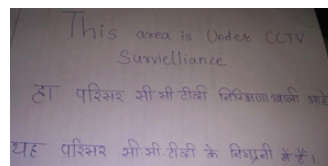 This area is Under CCTV
Survielliance
हा परिसर सी सी टीव्ही निरिक्षणाखाली आहे
यह परिसर सी सी टीव्ही के निगरानी में है।